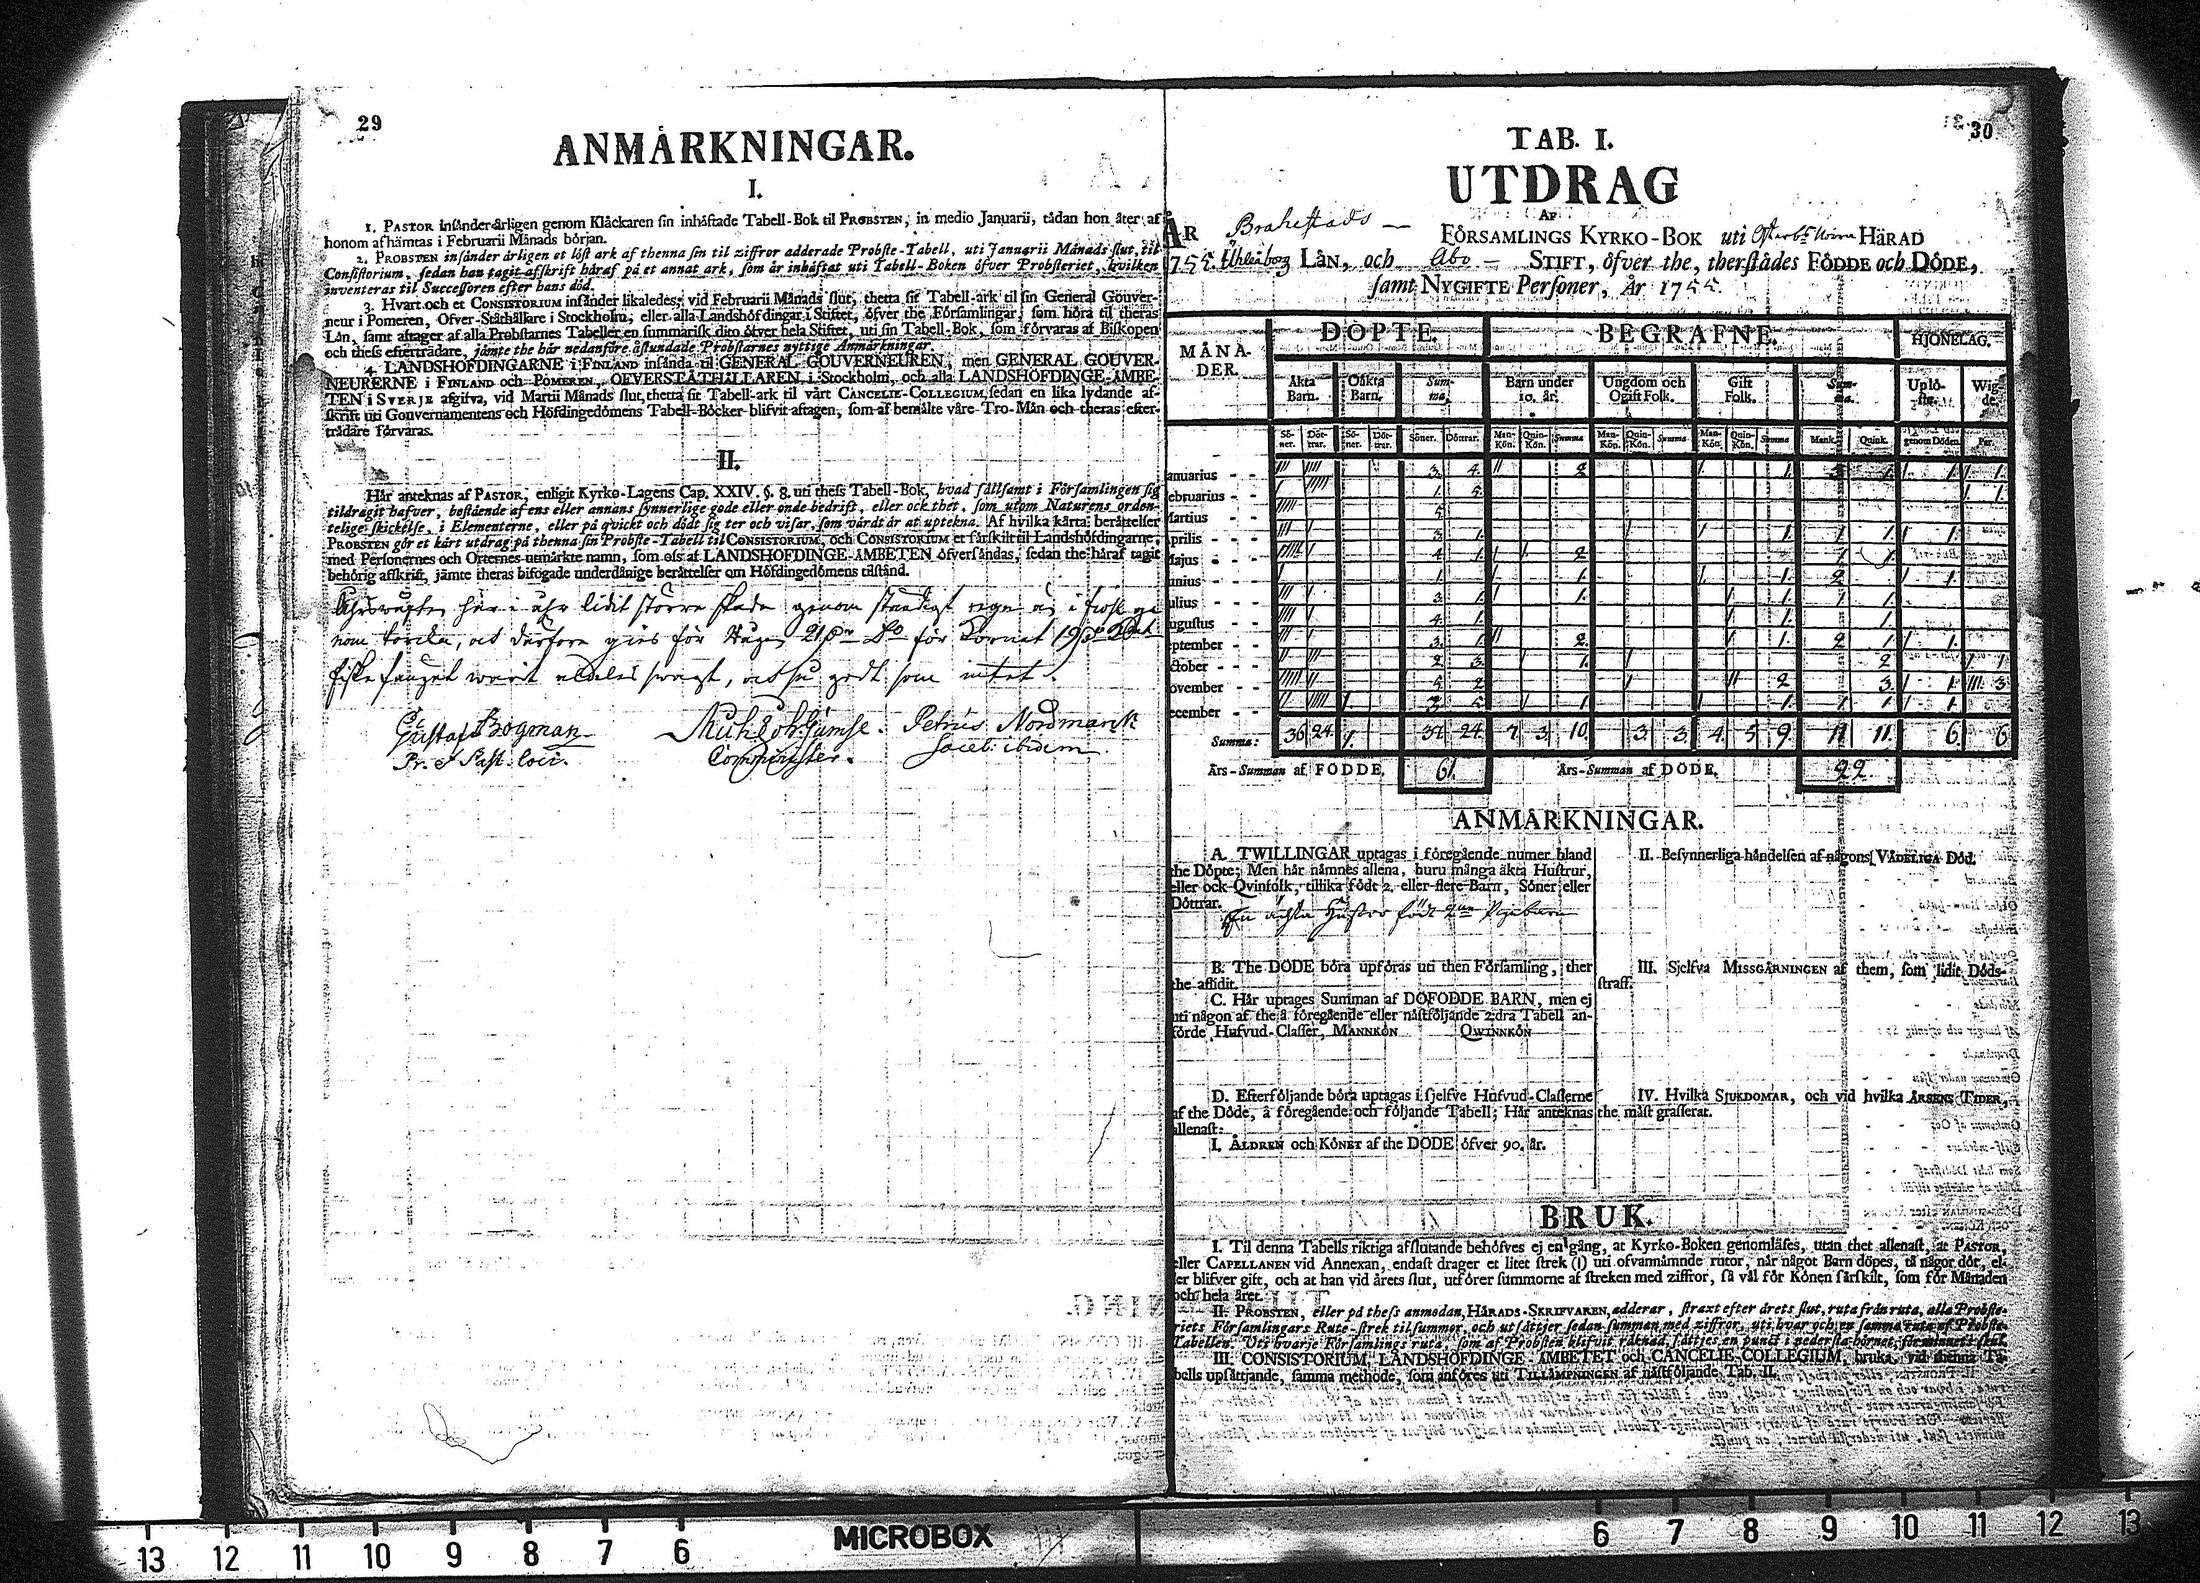 29
ANMÅRKNINGAR.
I.
1. PASTOR insånder årligen genom Klåckaren sin inhåftade Tabell-Bok til PROBSTEN, in medio Januarii, tådan hon åter af
honom afhåmtas i Februarii Månads början.
2. PROBSTEN insånder årligen et löst ark af thenna sin til ziffror adderade Probste-Tabell, uti Januarii Månads slut, til
Consistorium, sedan han tagit afskrift håraf på et annat ark, som år inhåftat uti Tabell-Boken öfver Probsteriet, hvilken
inventeras til Successoren efter hans död.
3. Hvart och et CONSISTORIUM insånder likaledes, vid Februarii Månads slut, thetta sit Tabell-ark til sin General Gouver-
neur i Pomeren, Öfver-Ståthållare i Stockholm, eller alla Landshöfdingar i Stiftet, öfver the Församlingar, som höra til theras
Lån, samt aftager af alla Probstarnes Tabeller en summarisk dito öfver hela Stiftet, uti sin Tabell-Bok, som förvaras af Biskopen
och thess eftertrådare, jåmte the hår nedanföre åstundade Probstarnes nyttige Anmårkningar.
4. LANDSHÖFDINGARNE i FINLAND insånda til GENERAL GOUVERNEUREN, men GENERAL GOUVER-
NEURERNE i FINLAND och POMEREN, OEVERSTÅTHÅLLAREN i Stockholm, och alla LANDSHÖFDINGE-ÅMBE-
TEN i SVERJE afgifva, vid Martii Månads slut, thetta sit Tabell-ark til vårt CANCELIE-COLLEGIUM, sedan en lika lydande af-
skrift uti Gouvernamentens och Höfdingedömens Tabell-Böcker blifvit aftagen, som af bemålte våre Tro-Mån och theras efter-
trådare förvaras.
II.
Hår anteknas af PASTOR, enligit Kyrko-Lagens Cap. XXIV. §. 8. uti thess Tabell-Bok, hvad sållsamt i Församlingen sig
tildragit hafver, bestående af ens eller annans synnerlige gode eller onde bedrift, eller ock thet, som utom Naturens orden-
telige skickelse, i Elementerne, eller på qvickt och dödt sig ter och visar, som vårdt år at uptekna. Af hvilka kårta beråttelser
PROBSTEN gör et kårt utdrag på thenna sin Probste-Tabell til CONSISTORIUM, och CONSISTORIUM et sårskilt til Landshöfdingarne,
med Personernes och Orternes utmårkte namn, som oss af LANDSHÖFDINGE-ÅMBETEN öfversåndas, sedan the håraf tagit
behörig afskrift, jåmte theras bifogade underdånige beråttelser om Höfdingedömens tilstånd.
Åhrswäxten har i åhr lidit större skada genom ständigt regn än i fiol ge
nom torcka, och därföre gies för Rågen 21 för Kornet 19
fiske fånget warit aldeles swagt, och så godt som intet.
Gustaf Bogman Petrus Nordmanck
Pr. & Past. loci. Comminister. Sacell: ibidem.
30
TAB. I.
UTDRAG
AF
ÅR Brahestads — FÖRSAMLINGS KYRKO-BOK uti HÅRAD
1755. Uhleåborg LÅN, och Åbo — STIFT, öfver the, therstådes FÖDDE och DÖDE,
samt NYGIFTE Personer, År 1755.
MÅNA-DER. DÖPTE. BEGRAFNE. HJONELAG.
Åkta Barn. Oåkta Barn. Summa. Barn under 10. år. Ungdom och Ogift Folk. Gift Folk. Summa. Uplöste. Wigde.
Söner. Döttrar. Söner. Döttrar. Söner. Döttrar. Man-Kön. Quin-Kön. Summa Man-Kön. Quin-Kön. Summa Man-Kön. Quin-Kön. Summa Mank. Quink. genom Döden. Par.
anuarius - - 3. 4. 2. 1. 3. 1. 1. 1.
ebruarius - - 1. 5. 1.
Martius - - 5.
prilis - - 3. 1. 1. 1. 1. 1.
Majus - - 4. 1. 2. 1. 1.
unius - - 1. 1. 1. 2. 1.
ulius - - 3. 1. 1. 1. 1.
ugustus - - 4. 1. 1. 1.
ptember - - 3. 1. 2. 1. 2. 1. 1.
ctober - - 2. 3. 1. 2. 1.
ovember - - 5. 2. 2. 3. 1. 3.
ecember - - 3. 5. 1. 1. 1. 1. 1.
Summa: 36 24. 1. 37. 24. 7. 3. 10. 3. 3. 4. 5. 9. 11 11. 6. 6.
Års-Summan af FÖDDE. 61. Års-Summan af DÖDE. 22.
ANMÅRKNINGAR.
A. TWILLINGAR uptagas i föregående numer bland
the Döpte; Men hår nåmnes allena, huru många åkta Hustrur,
eller ock Qvinfolk, tillika födt 2. eller flere Barn, Söner eller
Döttrar.
En ächta Hustro födt 2ne Pigebarn
B. The DÖDE böra upföras uti then Församling, ther
the aflidit.
C. Hår uptages Summan af DÖFÖDDE BARN, men ej
uti någon af the å föregående eller nåstföljande 2dra Tabell an-
förde Hufvud-Classer, MANNKÖN QWINNKÖN
D. Efterföljande böra uptagas i sjelfve Hufvud-Classerne
af the Döde, å föregående och följande Tabell; Hår anteknas
allenast:
I. ÅLDREN och KÖNET af the DÖDE öfver 90. år.
II. Besynnerliga håndelsen af någons VÅDELIGA Död.
III. Sjelfva MISSGÅRNINGEN af them, som lidit Döds-
straff.
IV. Hvilka SJUKDOMAR, och vid hvilka ÅRSENS TIDER,
the måst grasserat.
BRUK.
I. Til denna Tabells riktiga afslutande behöfves ej en gång, at Kyrko-Boken genomlåses, utan thet allenast, at PASTOR,
eller CAPELLANEN vid Annexan, endast drager et litet strek (I) uti ofvannåmnde rutor, når något Barn döpes, tå någor dör, el-
ler blifver gift, och at han vid årets slut, utförer summorne af streken med ziffror, så vål för Könen sårskilt, som för Månaden
och hela året.
II. PROBSTEN, eller på thess anmodan, HÅRADS-SKRIFVAREN, adderar, straxt efter årets slut, ruta från ruta, alla Probste-
riets Församlingars Rute-strek til summor, och utsåttjer sedan summan med ziffror, uti hvar och en samma ruta af Probste-
Tabellen. Uti hvarje Församlings ruta, som af Probsten blifvit råknad, såttjes en punct i nedersta hörnet, för minnet skul.
III. CONSISTORIUM, LANDSHÖFDINGE-ÅMBETET och CANCELIE COLLEGIUM, bruka, vid thenna Ta-
bells upsåttjande, samma methode, som anföres uti TILLÅMPNINGEN af nåstföljande Tab. II.
13 12 11 10 9 8 7 6 MICROBOX 6 7 8 9 10 11 12 13